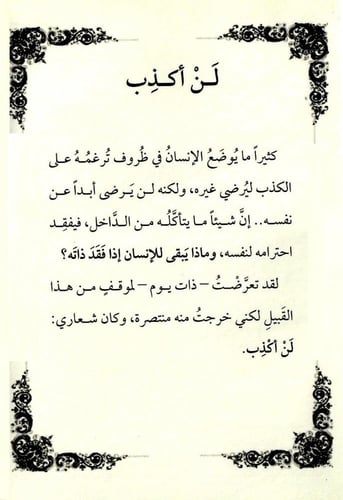 لَنْ أكذِب
كثيراً ما يُوضَعُ الإنسانُ في ظُروف تُرغمُهُ على
الكذب ليُرضي غيره، ولكنه لن يَرضى أبداً عن
نفسه.. إنَّ شيئاً ما يتأكَّلُه من الدَّاخل، فيفقِد
احترامه لنفسه، وماذا يَبقى للإنسان إذا فَقَدَ ذاتَه؟
لقد تعرَّضْتُ – ذات يوم – لموقفٍ من هذا
القَبيلِ لكني خرجتُ منه منتصرة، وكان شعاري:
لَنْ أكْذِب.